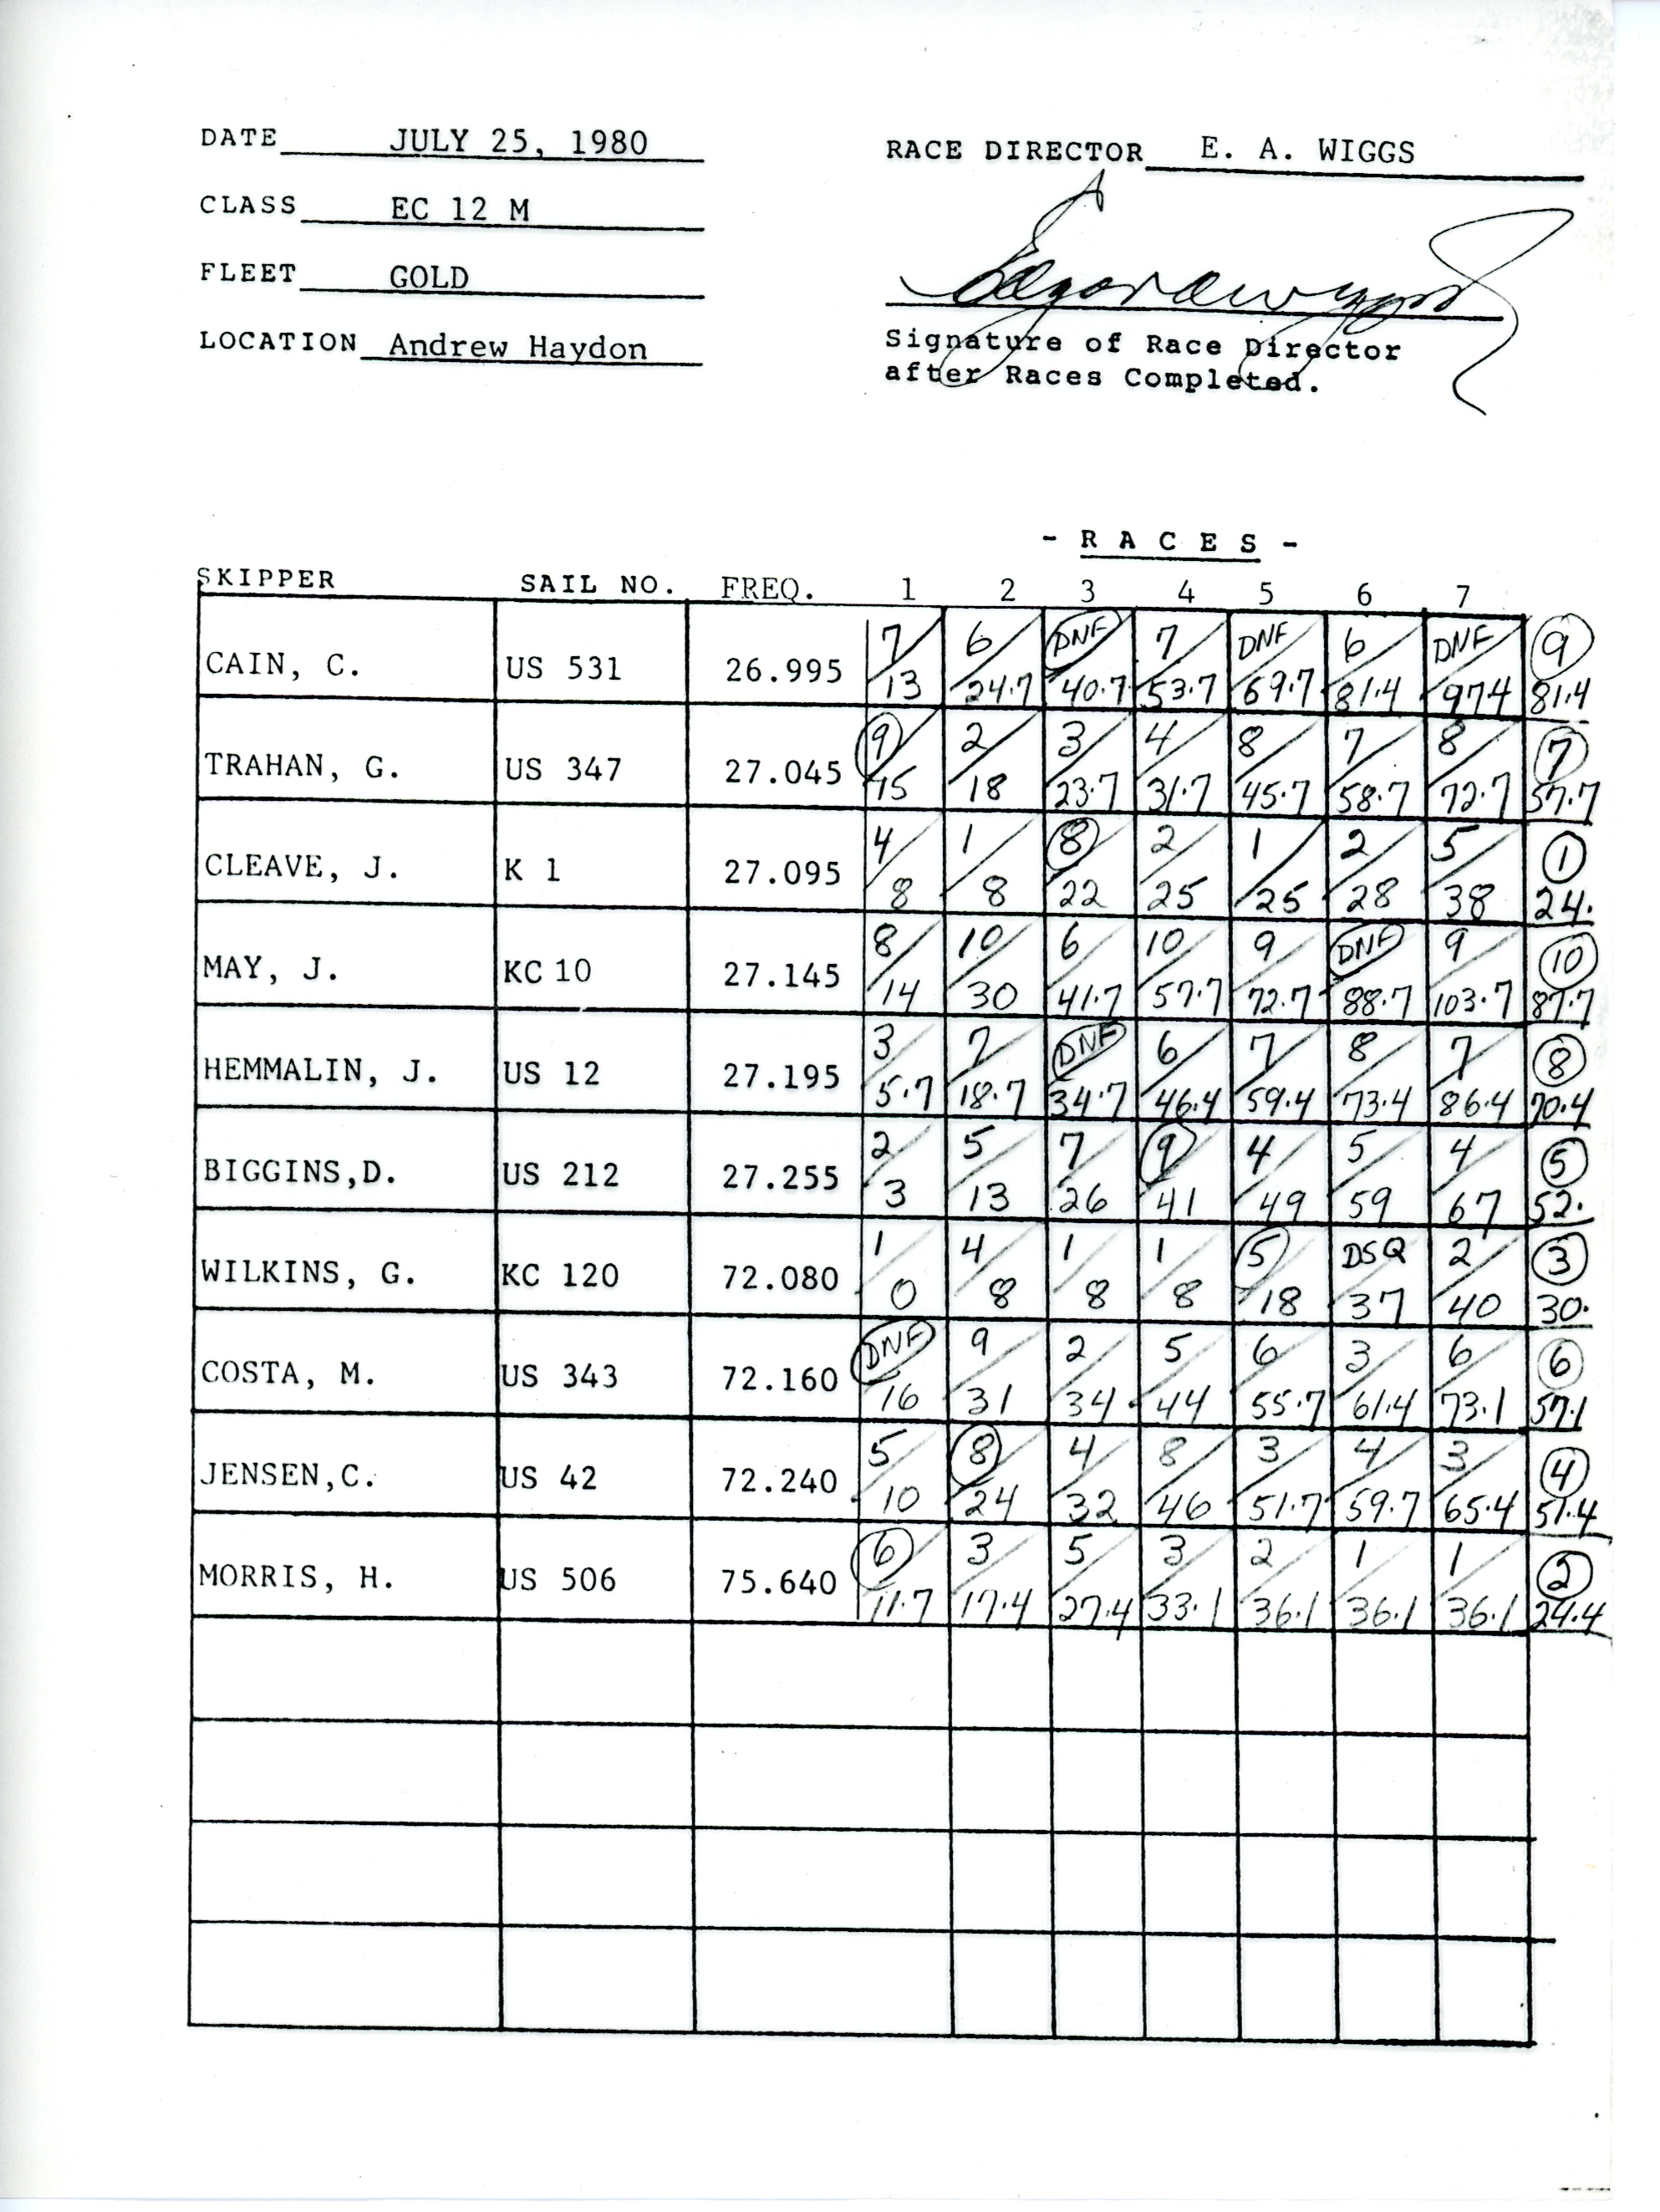 DATE JULY 25, 1980
RACE DIRECTOR E. A. WIGGS
CLASS EC 12 M
FLEET GOLD
LOCATION Andrew Haydon
Signature of Race Director
after Races Completed.
- R A C E S -
SKIPPER SAIL NO. FREQ. 1 2 3 4 5 6 7
CAIN, C. US 531 26.995 7/13 6/24.7 DNF/40.7 7/53.7 DNF/69.7 6/81.4 DNF/97.4 9 81.4
TRAHAN, G. US 347 27.045 9/15 2/18 3/23.7 4/31.7 8/45.7 7/58.7 8/72.7 7 57.7
CLEAVE, J. K 1 27.095 4/8 1/8 8/22 2/25 1/25 2/28 5/38 1 24.
MAY, J. KC 10 27.145 8/14 10/30 6/41.7 10/57.7 9/72.7 DNF/88.7 9/103.7 10 87.7
HEMMALIN, J. US 12 27.195 3/5.7 7/18.7 DNF/34.7 6/46.4 7/59.4 8/73.4 7/86.4 8 70.4
BIGGINS,D. US 212 27.255 2/3 5/13 7/26 9/41 4/49 5/59 4/67 5 52.
WILKINS, G. KC 120 72.080 1/0 4/8 1/8 1/8 5/18 DSQ 37 2/40 3 30.
COSTA, M. US 343 72.160 DNF/16 9/31 2/34 5/44 6/55.7 3/61.4 6/73.1 6 57.1
JENSEN,C. US 42 72.240 5/10 8/24 4/32 8/46 3/51.7 4/59.7 3/65.4 4 51.4
MORRIS, H. US 506 75.640 6/11.7 3/17.4 5/27.4 3/33.1 2/36.1 1/36.1 1/36.1 2 24.4